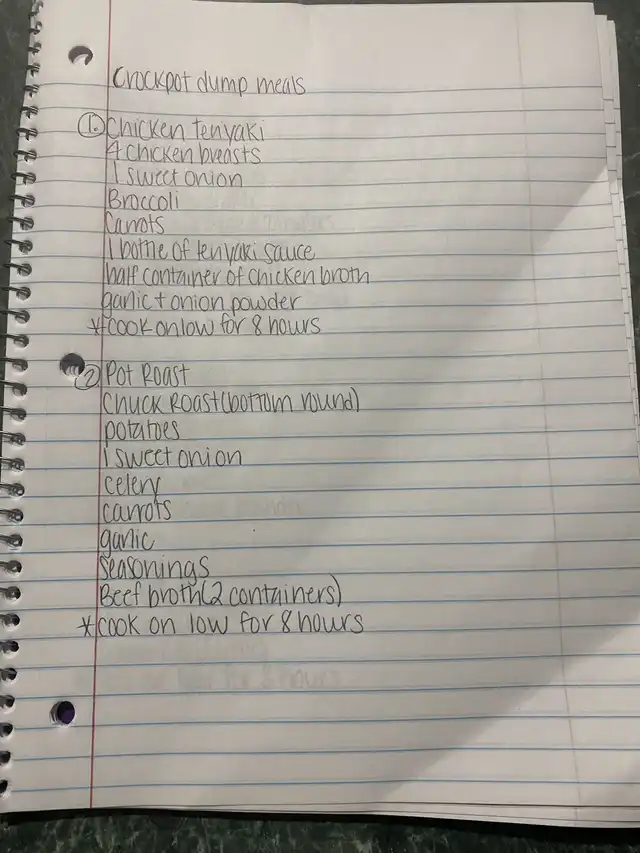 Crockpot dump meals
1. Chicken teriyaki
4 chicken breasts
1 sweet onion
Broccoli
Carrots
1 bottle of teriyaki sauce
half container of chicken broth
garlic + onion powder
*cook on low for 8 hours
2 Pot Roast
Chuck Roast (bottom round)
potatoes
1 sweet onion
celery
carrots
garlic
seasonings
Beef broth (2 containers)
*cook on low for 8 hours